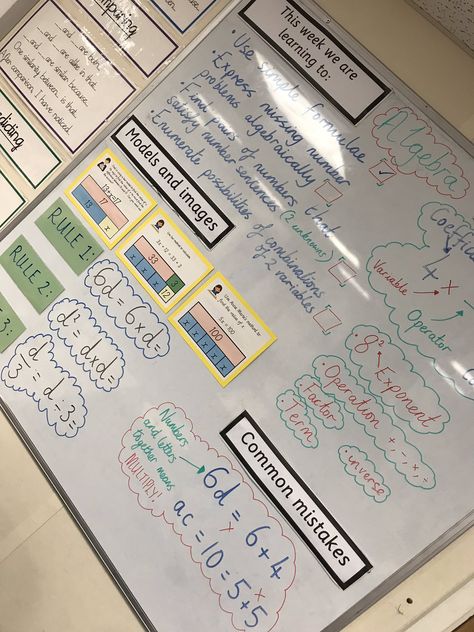 Comparing
___ and ___ are both
___ and ___ are alike in that
___ and ___ are similar because
One similarity between... is that
After comparison, I have noticed
This week we are
learning to:
• Use simple formulae
• Express missing number
problems algebraically
Find pairs of numbers that
satisfy number sentences (2 unknowns)
Enumerate possibilities of combinations
of 2 variables
Algebra
4 x
Variable
Operator
8²
Exponent
• Operation + - × ÷
• Factor
• Term
• inverse
Models and images
17
13
x
33
3
12
5x = 100
100
x x x x x
RULE 1:
6d = 6×d=
RULE 2:
d² = d×d=
3:
d/3 = d÷3=
Common mistakes
Numbers
and letters
together means
MULTIPLY!
6d = 6+4
x
ac = 10 = 5+5
x